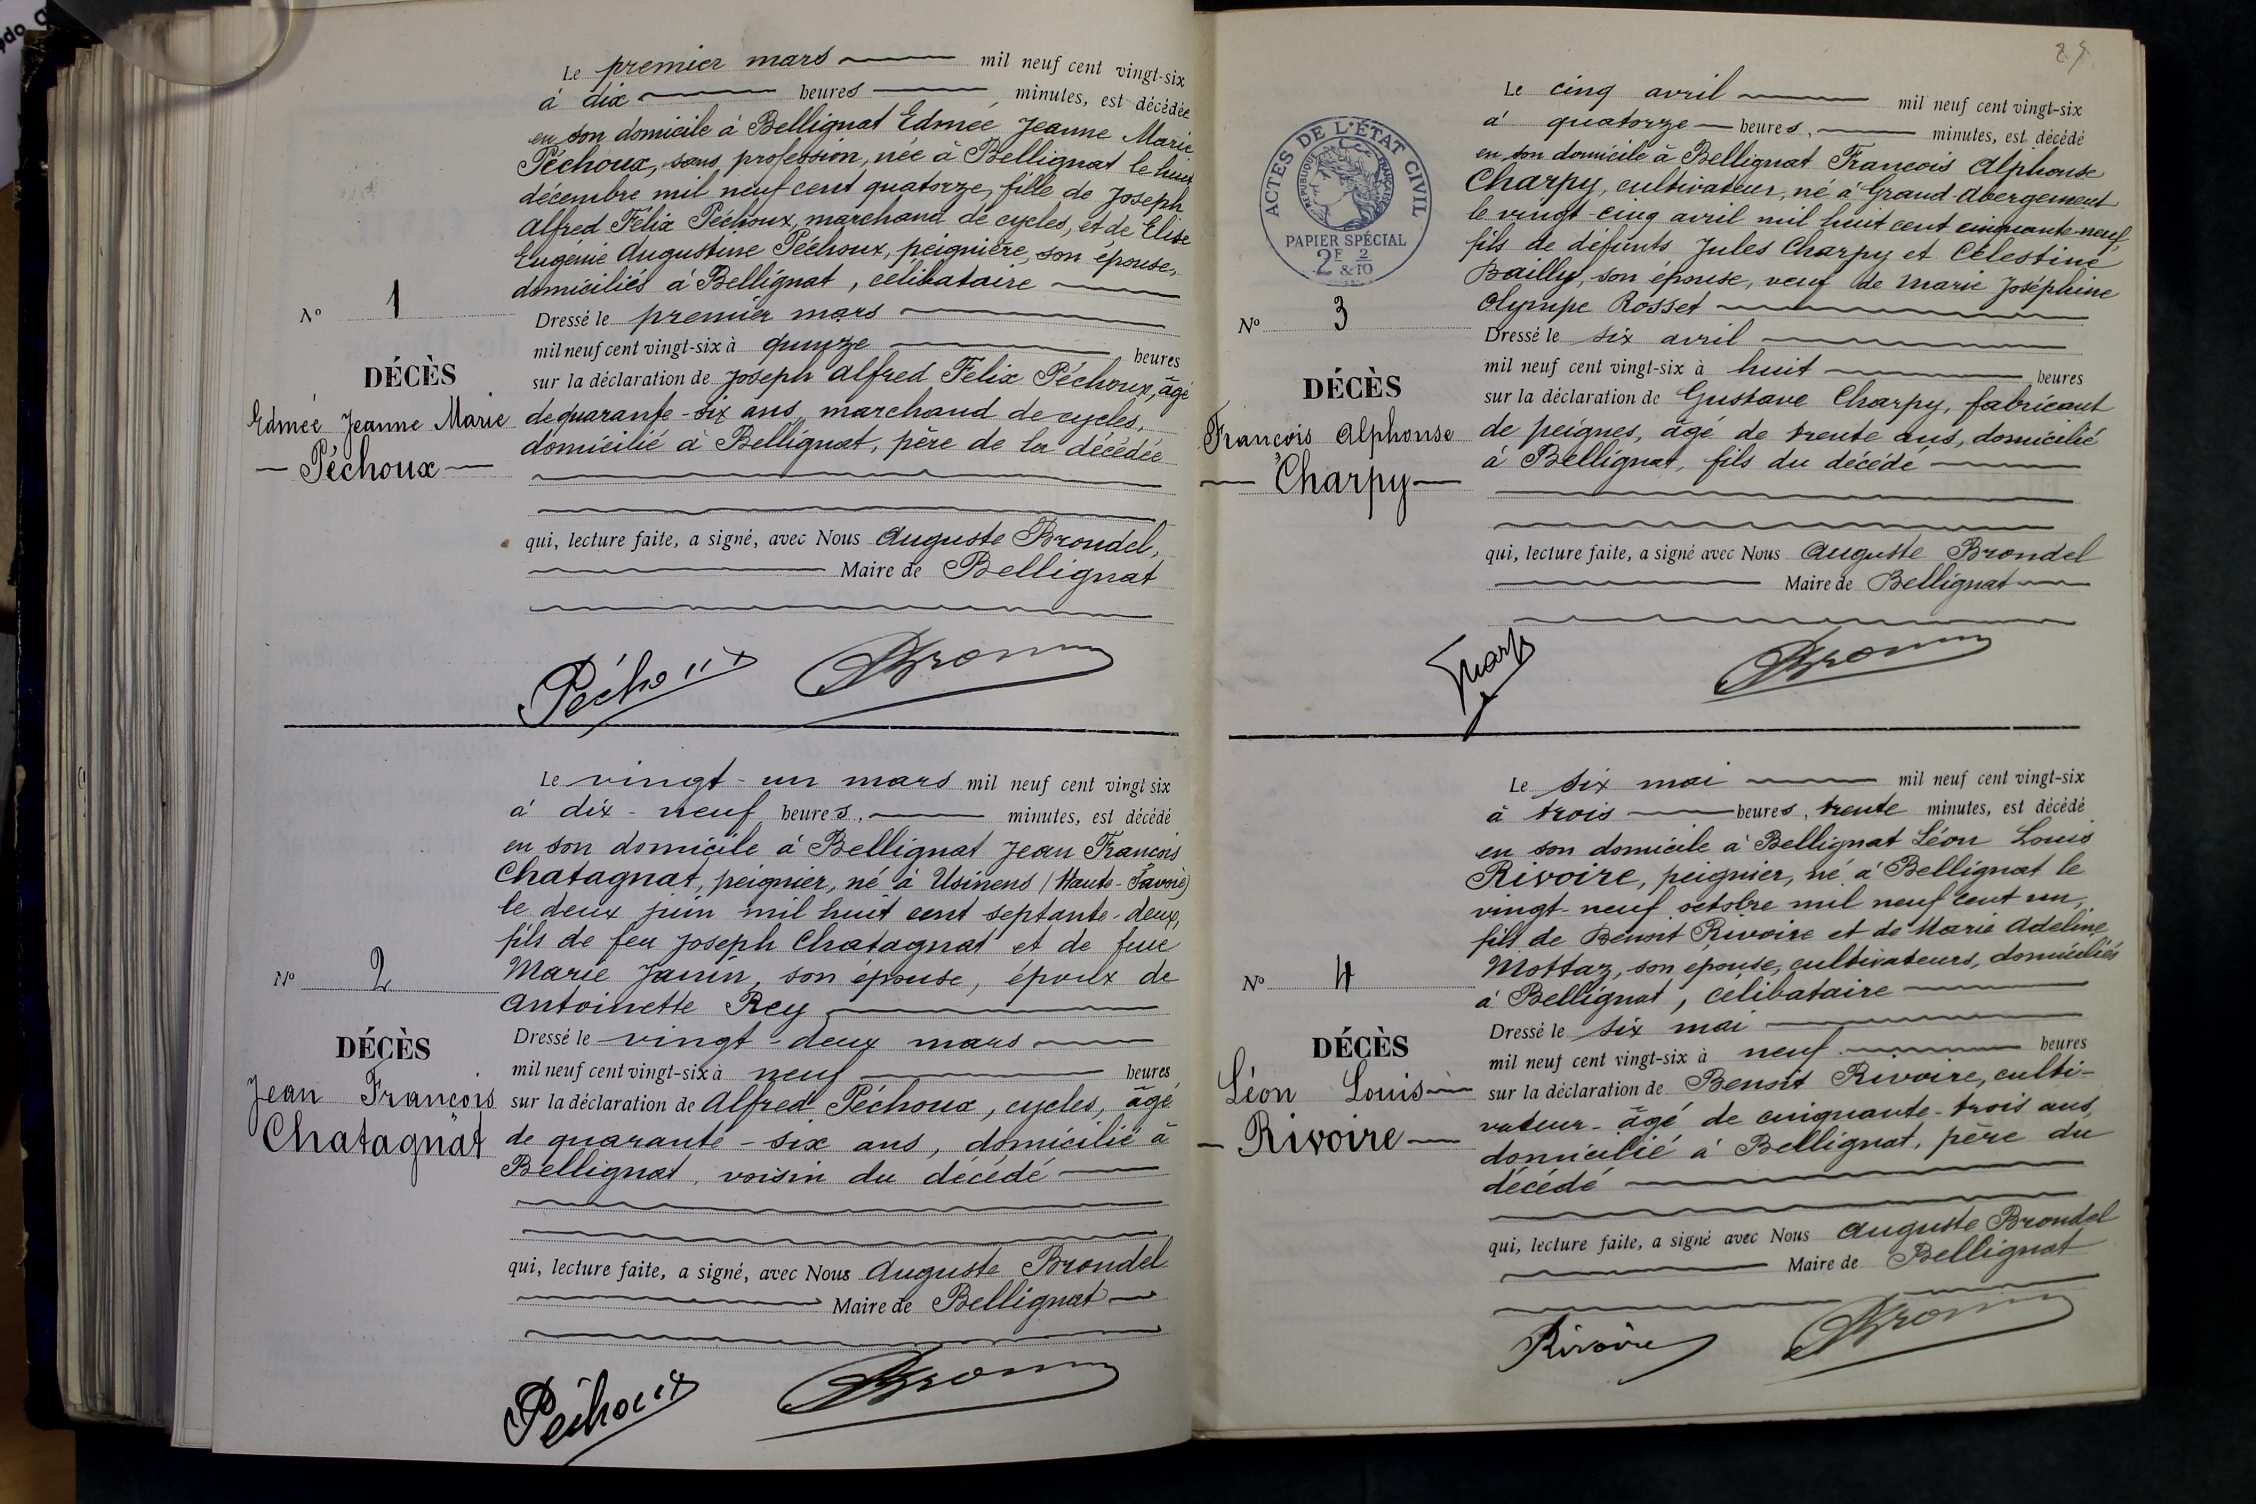 Le premier mars mil neuf cent vingt-six
à dix heures minutes, est décédée
en son domicile à Bellignat Edmée Jeanne Marie
Péchoux, sans profession, née à Bellignat le huit
décembre mil neuf cent quatorze, fille de Joseph
Alfred Félix Péchoux, marchand de cycles, et de Elise
Eugénie Augustine Péchoux, peignière, son épouse,
domiciliés à Bellignat, célibataire
Dressé le premier mars
mil neuf cent vingt-six à quinze heures
sur la déclaration de Joseph Alfred Felix Péchoux, âgé
de quarante-six ans, marchand de cycles,
domicilié à Bellignat, père de la décédée
qui, lecture faite, a signé, avec Nous Auguste Brondel,
Maire de Bellignat
No 1
DÉCÈS
Edmée Jeanne Marie
Péchoux
Péchoux
Le vingt-un mars mil neuf cent vingt six
à dix-neuf heures, minutes, est décédé
en son domicile à Bellignat Jean François
Chatagnat, peignier, né à Usinens (Haute-Savoie)
le deux juin mil huit cent septante-deux,
fils de feu Joseph Chatagnat et de feue
Marie Janin, son épouse, époux de
Antoinette Rey
Dressé le vingt-deux mars
mil neuf cent vingt-six à neuf heures
sur la déclaration de Alfred Péchoux, cycles, âgé
de quarante-six ans, domicilié à
Bellignat, voisin du décédé
qui, lecture faite, a signé, avec Nous Auguste Brondel
Maire de Bellignat
No 2
DÉCÈS
Jean François
Chatagnat
Péchoux
25
ACTES DE L'ÉTAT CIVIL
RÉPUBLIQUE FRANÇAISE
PAPIER SPÉCIAL
2F & 2/10
Le cinq avril mil neuf cent vingt-six
à quatorze heures, minutes, est décédé
en son domicile à Bellignat François Alphonse
Charpy, cultivateur, né à Grand-Abergement
le vingt-cinq avril mil huit cent cinquante-neuf,
fils de défunts Jules Charpy et Célestine
Bailly, son épouse, veuf de Marie Joséphine
Olympe Rosset
Dressé le six avril
mil neuf cent vingt-six à huit heures
sur la déclaration de Gustave Charpy, fabricant
de peignes, âgé de trente ans, domicilié
à Bellignat, fils du décédé
qui, lecture faite, a signé avec Nous Auguste Brondel
Maire de Bellignat
No 3
DÉCÈS
François Alphonse
Charpy
Le six mai mil neuf cent vingt-six
à trois heures, trente minutes, est décédé
en son domicile à Bellignat Léon Louis
Rivoire, peignier, né à Bellignat le
vingt-neuf octobre mil neuf cent un,
fils de Benoit Rivoire et de Marie Adeline
Mottaz, son épouse, cultivateurs, domiciliés
à Bellignat, célibataire
Dressé le six mai
mil neuf cent vingt-six à neuf heures
sur la déclaration de Benoit Rivoire, culti-
vateur - âgé de cinquante-trois ans,
domicilié à Bellignat, père du
décédé
qui, lecture faite, a signé avec Nous Auguste Brondel
Maire de Bellignat
No 4
DÉCÈS
Léon Louis
Rivoire
Rivoire